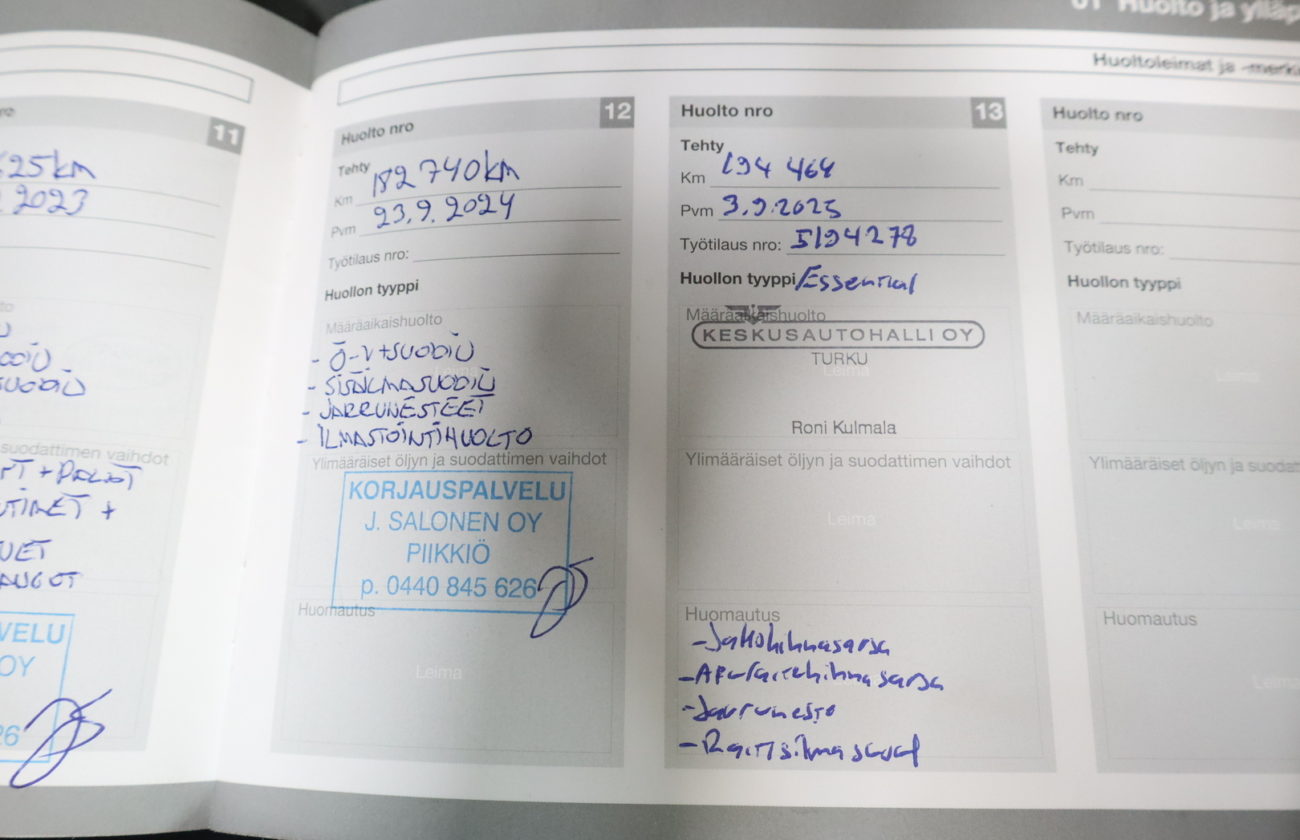 01 Huolto ja ylläp
Huoltoleimat ja -merk
11
25 km
2023
SUODIU
+
VELU
OY
26
Huolto nro 12
Tehty
Km 182 740 km
Pvm 23.9.2024
Työtilaus nro:
Huollon tyyppi
Määräaikaishuolto
- Ö-V+SUODIU
Leima
- SISÄILMASUODIU
- JARRUNESTEET
- ILMASTOINTIHUOLTO
Ylimääräiset öljyn ja suodattimen vaihdot
KORJAUSPALVELU
J. SALONEN OY
PIIKKIÖ
p. 0440 845 626
Huomautus
Leima
Huolto nro 13
Tehty
Km 194 464
Pvm 3.9.2025
Työtilaus nro: 5194278
Huollon tyyppi Essential
Määräaikaishuolto
KESKUSAUTOHALLI OY
TURKU
Leima
Roni Kulmala
Ylimääräiset öljyn ja suodattimen vaihdot
Leima
Huomautus
- Jakohihnasarja
- Apulaitehihnasarja
- Jarruneste
- Raitisilmasuod
Huolto nro
Tehty
Km
Pvm
Työtilaus nro:
Huollon tyyppi
Määräaikaishuolto
Leima
Ylimääräiset öljyn ja suodat
Leima
Huomautus
Leima